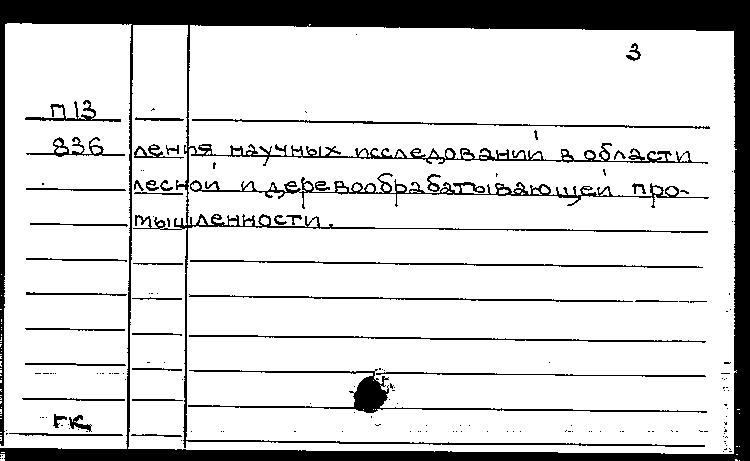 3
П13
836 ления научных исследований в области
лесной и деревообрабатывающей про-
мышленности.
ГК